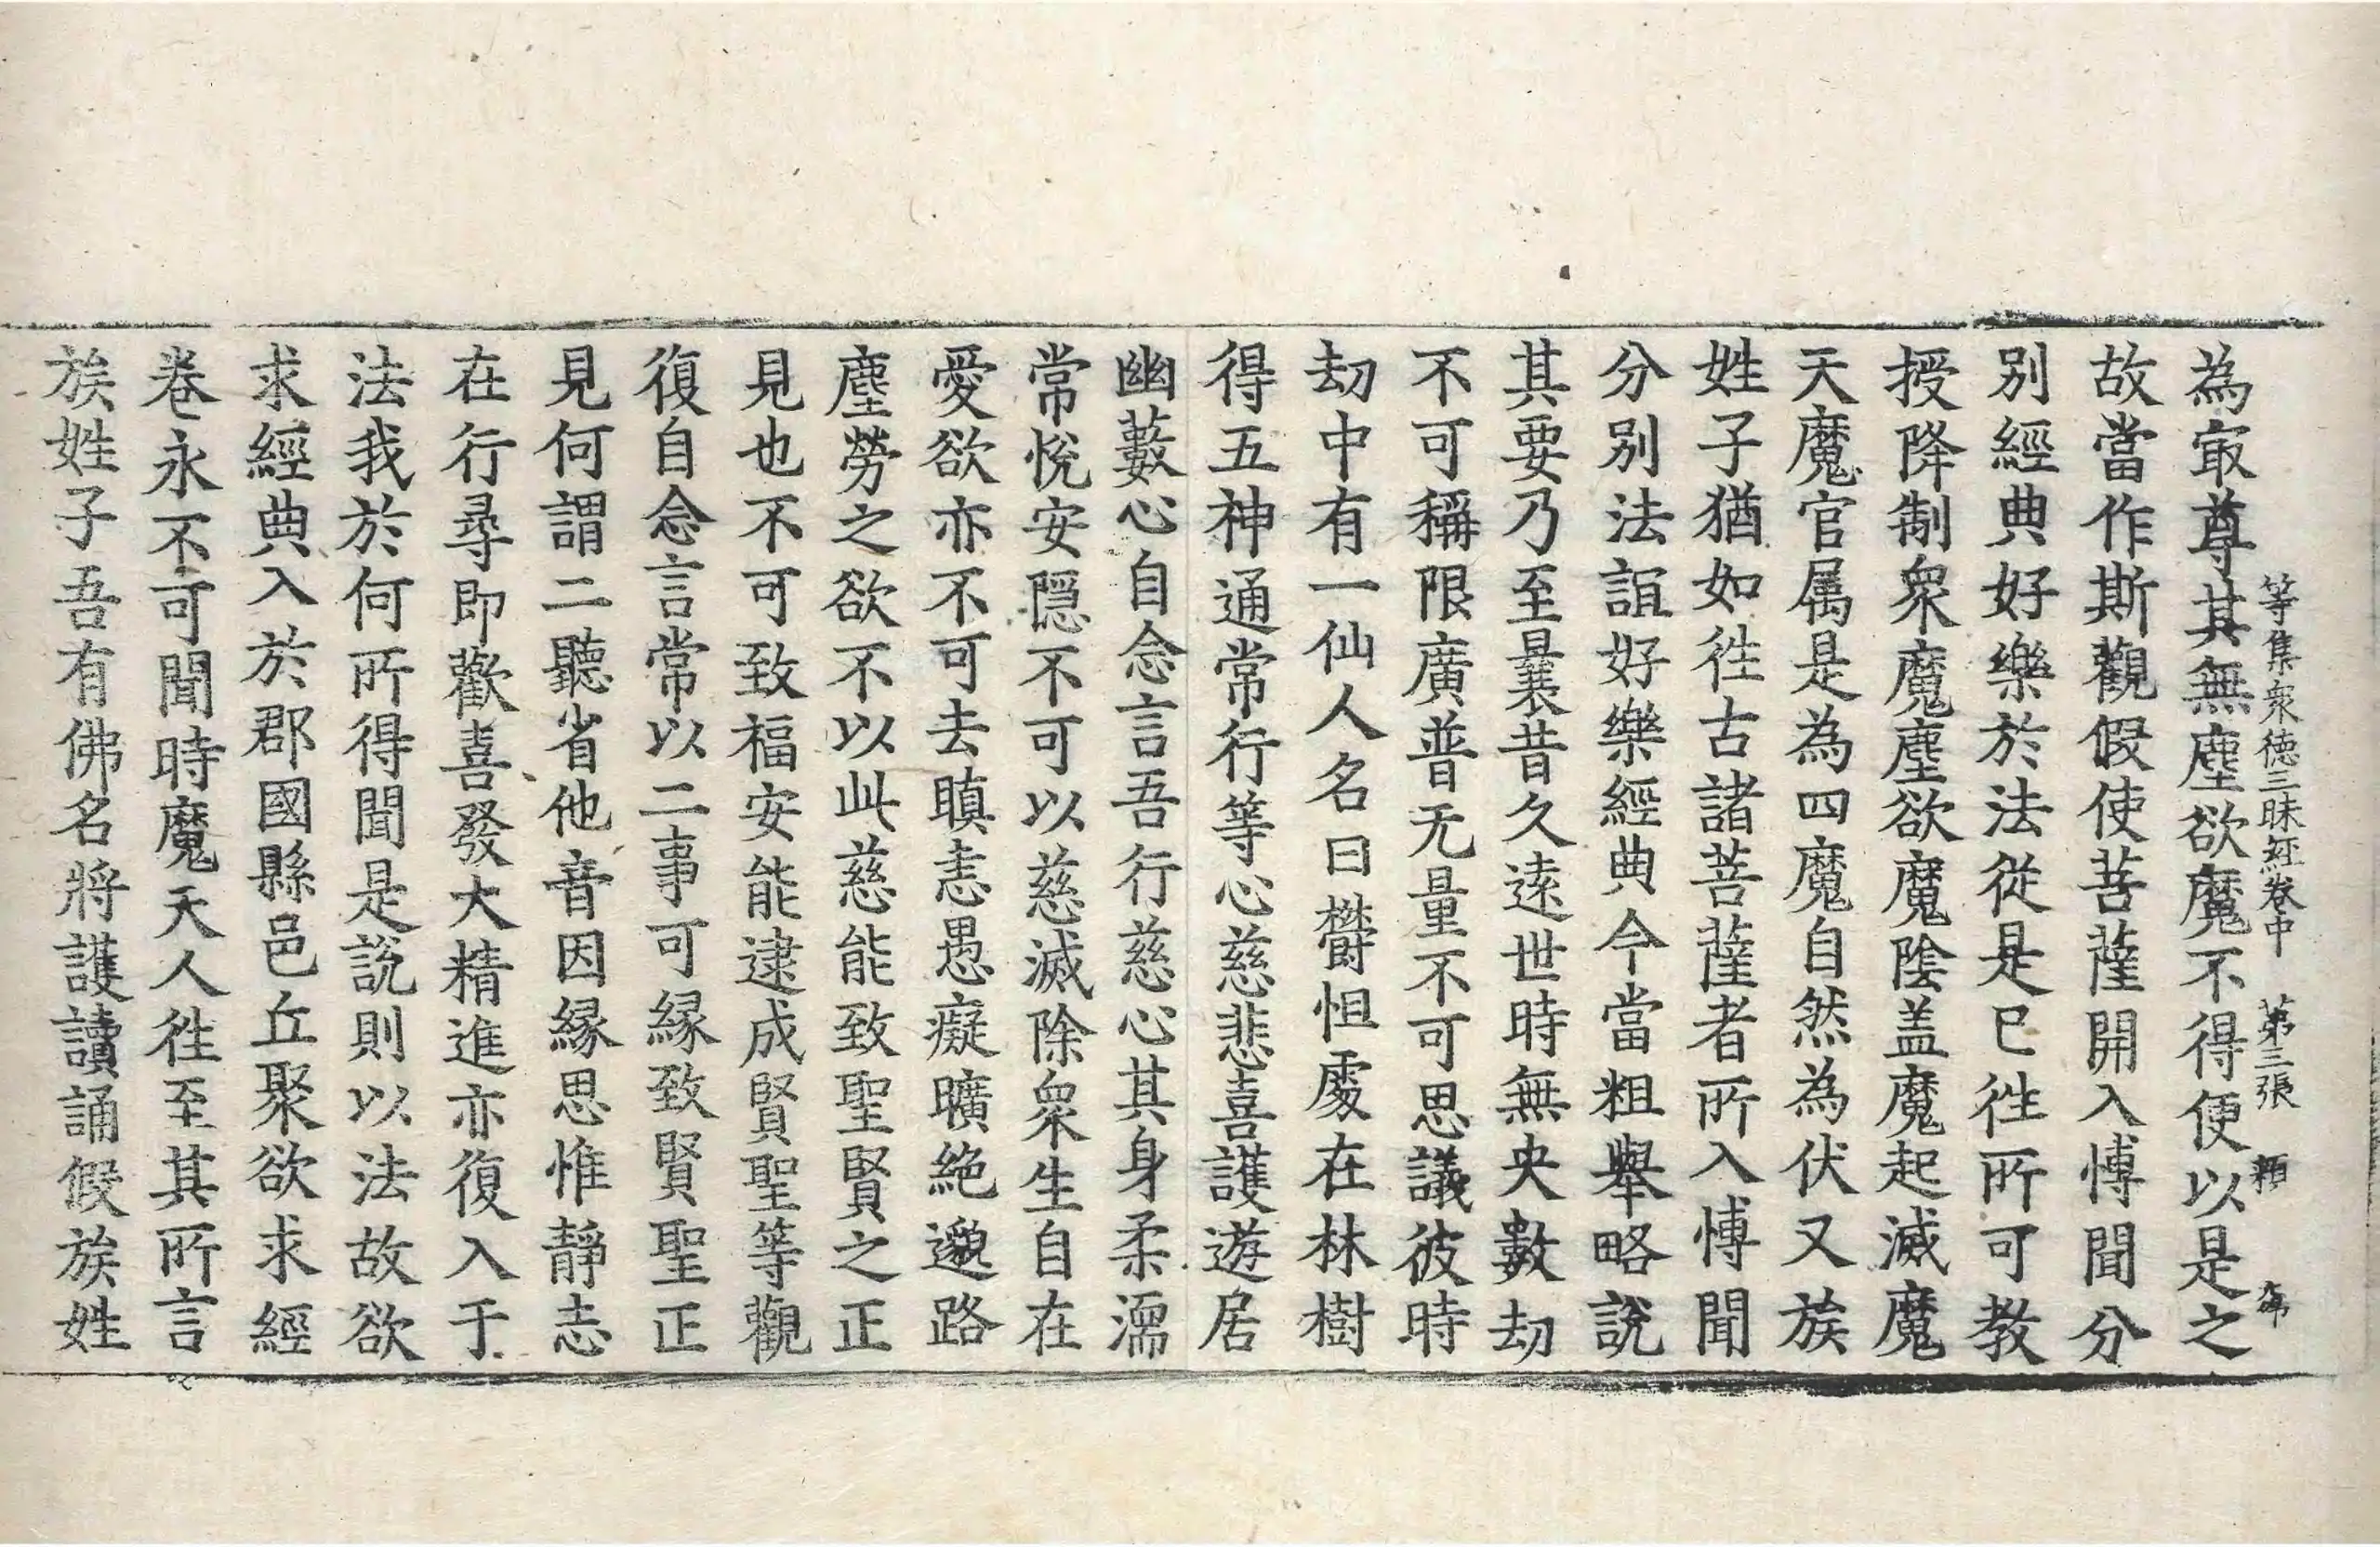 等集衆德三昧經卷中 第三張
為冣尊其無塵欲魔不得便以是之
故當作斯觀假使菩薩開入博聞分
別經典好樂於法從是已徃所可教
授降制衆魔塵欲魔陰盖魔起滅魔
天魔官属是為四魔自然為伏又族
姓子猶如徃古諸菩薩者所入博聞
分別法誼好樂經典今當粗舉略說
其要乃至曩昔久遠世時無央數劫
不可稱限廣普无量不可思議彼時
劫中有一仙人名曰欝怛處在林樹
得五神通常行等心慈悲喜護遊居
幽藪心自念言吾行慈心其身柔濡
常悅安隱不可以慈滅除衆生自在
愛欲亦不可去瞋恚愚癡曠絶邈路
塵勞之欲不以此慈能致聖賢之正
見也不可致福安能逮成賢聖等觀
復自念言常以二事可緣致賢聖正
見何謂二聽省他音因緣思惟靜志
在行尋即歡喜發大精進亦復入于
法我於何所得聞是說則以法故欲
求經典入於郡國縣邑丘聚欲求經
卷永不可聞時魔天人徃至其所言
族姓子吾有佛名將護讀誦假族姓